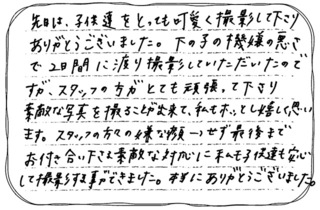 先日は、子供達をとっても可愛く撮影して下さり
ありがとうございました。下の子の機嫌の悪さ
で2日間に渡り撮影していただいたので
すが、スタッフの方がとても頑張って下さり
素敵な写真を撮ることが出来て、私もホッとし嬉しく思い
ます。スタッフの方々の嫌な顔一つせず最後まで
お付き合い下さる素敵な対応に私も子供達も安心
して撮影する事ができました。本当にありがとうございました。